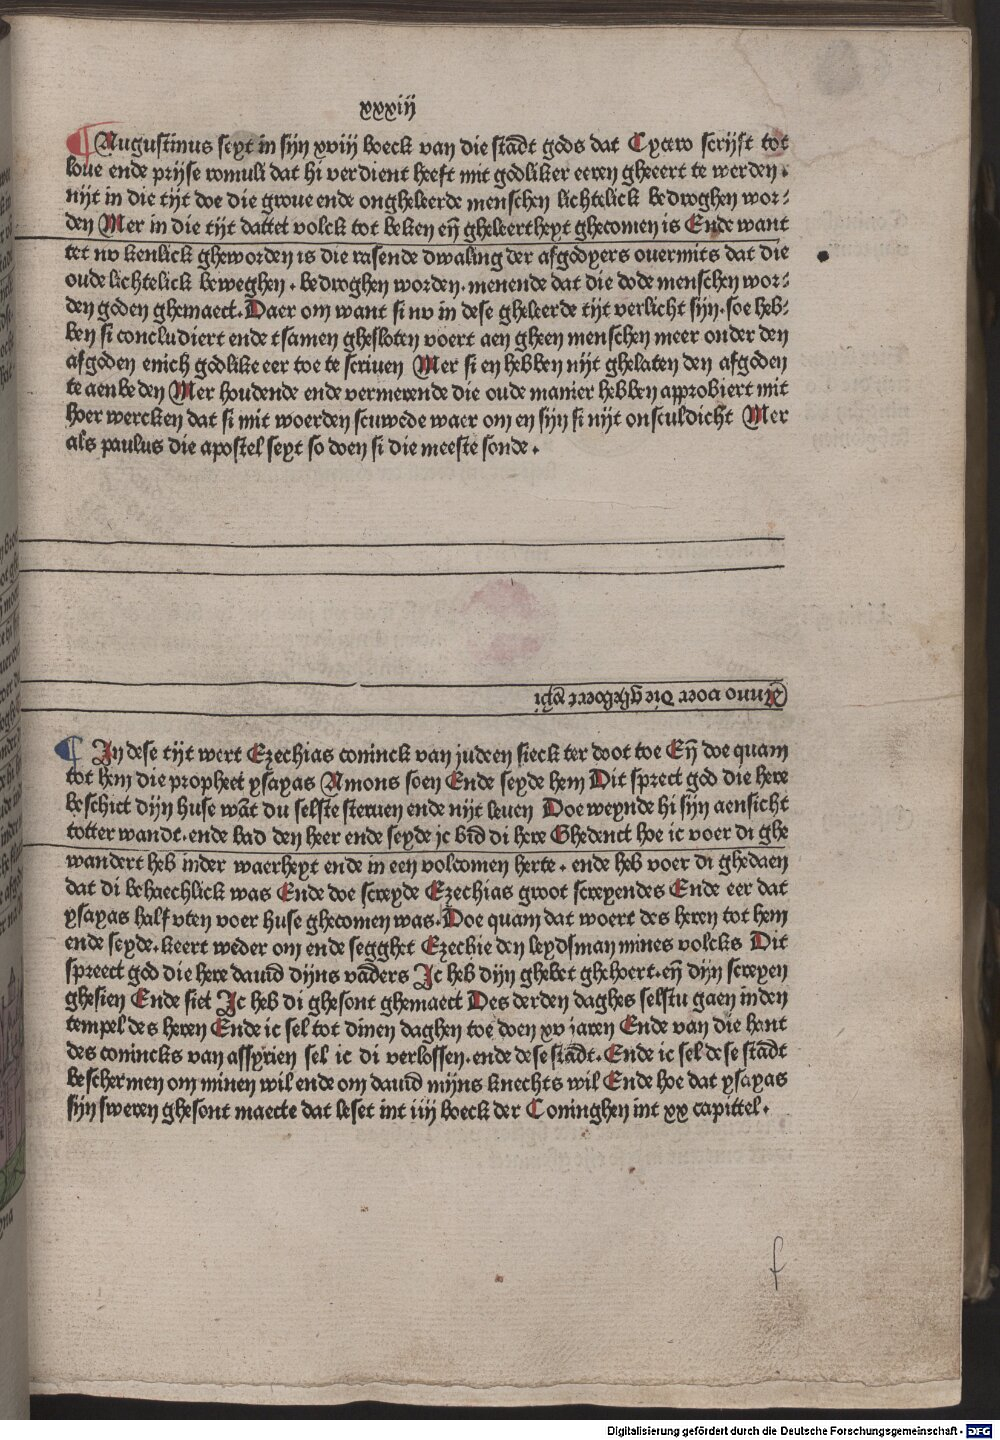 xxxiij
¶ Augustinus seyt in sijn xviij boeck van die stadt gods dat Cycero scrijft tot
loue ende prijse romuli dat hi verdient heeft mit godliker eeren gheeert te werden.
nijt in die tijt doe die groue ende ongheleerde menschen lichtelick bedroghen wor⸗
den Mer in die tijt dattet volck tot beken eñ gheleertheyt ghecomen is Ende want
tet nv kenlick gheworden is die rasende dwaling der afgodyers ouermits dat die
oude lichtelick beweghen. bedroghen worden. menende dat die dode menschen wor⸗
den goden ghemaect. Daer om want si nv in dese gheleerde tijt verlicht sijn. soe heb⸗
ben si concludiert ende tsamen ghesloten voert aen gheen menschen meer onder den
afgoden enich godlike eer toe te scriuen Mer si en hebben nijt ghelaten den afgoden
te aenbeden Mer houdende ende vermerende die oude manier hebben approbiert mit
hoer wercken dat si mit woerden scuwede waer om en sijn si nijt onsculdicht Mer
als paulus die apostel seyt so doen si die meeste sonde.
Anno voer die gheboert xp̄i
¶ In dese tijt wert Ezechias coninck van judeen sieck ter doot toe Eñ doe quam
tot hem die propheet ysayas Amons soen Ende seyde hem Dit sprect god die here
beschict dijn huse wāt du selste steruen ende nijt leuen Doe weynde hi sijn aensicht
totter wandt. ende bad den heer ende seyde jc bid di here Ghedenct hoe ic voer di ghe
wandert heb inder waerheyt ende in een volcomen herte. ende heb voer di ghedaen
dat di behaechlick was Ende doe screyde Ezechias groot screyendes Ende eer dat
ysayas half vten voer huse ghecomen was. Doe quam dat woert des heren tot hem
ende seyde. keert weder om ende segghet Ezechie den leydsman mines volcks Dit
spreect god die here dauid dijns vaders Jc heb dijn ghebet ghehoert. eñ dijn screyen
ghesien Ende siet Jc heb di ghesont ghemaect Des derden daghes selstu gaen in den
tempel des heren Ende ic sel tot dinen daghen toe doen xv jaren Ende van die hant
des conincks van assyrien sel ic di verlossen. ende dese stadt. Ende ic sel dese stadt
beschermen om minen wil ende om dauid mijns knechts wil Ende hoe dat ysayas
sijn sweren ghesont maecte dat leset int iiij boeck der Coninghen int xx capittel.
f
Digitalisierung gefördert durch die Deutsche Forschungsgemeinschaft - DFG